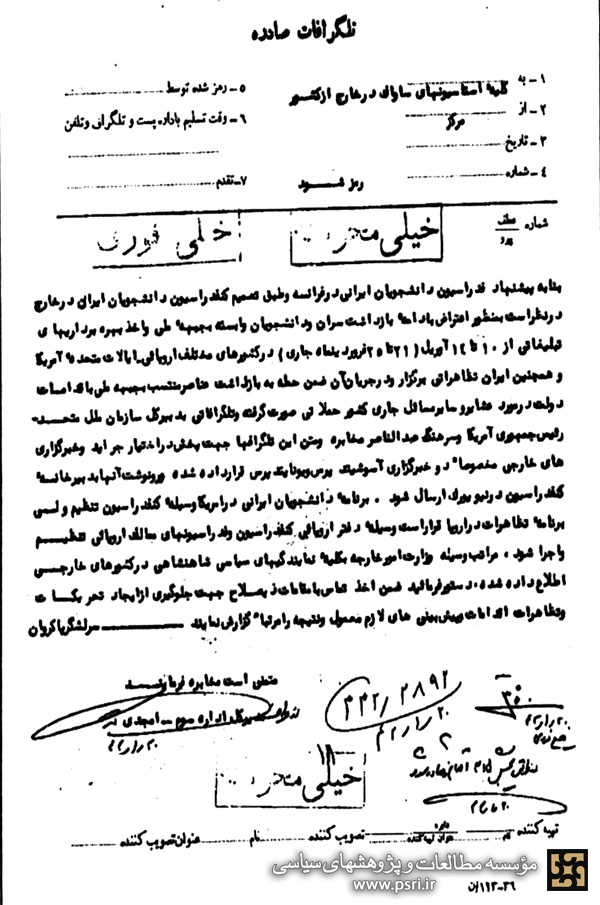 تلگرافات صادره
۱ - به کلیه استاسیونهای ساواک در خارج از کشور
۲ - از مرکز
۳ - تاریخ
۴ - شماره رمز شود
۵ - رمز شده توسط
۶ - وقت تسلیم باداره پست و تلگراف و تلفن
۷ - تقدم
شماره عطف پیرو
خیلی محرمانه
خیلی فوری
بنا به پیشنهاد فدراسیون دانشجویان ایرانی در فرانسه و طبق تصمیم کنفدراسیون دانشجویان ایرانی در خارج
در نظر است بمنظور اعتراض بادامه بازداشت سران و دانشجویان وابسته بجبهه ملی و اخذ بهره برداریهای
تبلیغاتی از ۱۰ تا ۱۴ آوریل (۲۱ تا ۲۵ فروردینماه جاری) در کشورهای مختلف اروپائی، ایالات متحده آمریکا
و همچنین ایران تظاهراتی برگزار و در جریان آن ضمن حمله به بازداشت عناصر منتسب بجبهه ملی باقدامات
دولت در مورد عشایر و سایر مسائل جاری کشور حملاتی صورت گرفته و تلگرافاتی به دبیر کل سازمان ملل متحد -
رئیس جمهوری آمریکا و سرهنگ عبدالناصر مخابره و متن این تلگرافها جهت پخش در اختیار جراید و خبرگزاری
های خارجی مخصوصا" دو خبرگزاری آسوشیتد پرس و یونایتد پرس قرار داده شده و رونوشت آنها به دبیرخانه
کنفدراسیون در نیویورک ارسال شود . برنامه دانشجویان ایرانی در آمریکا وسیله کنفدراسیون تنظیم و لسی
برنامه تظاهرات در اروپا قرار است وسیله دفتر اروپائی کنفدراسیون و فدراسیونهای ممالک اروپائی تنظیم
و اجرا شود . مراتب وسیله وزارت امور خارجه بکلیه نمایندگیهای سیاسی شاهنشاهی در کشورهای خارجی
اطلاع داده شده ، دستور فرمائید ضمن اخذ تماس با مقامات ذیصلاح جهت جلوگیری از ایجاد تحریکات
و تظاهرات اقدامات و پیش بینی های لازم معمول و نتیجه را مرتبا" گزارش نمایند سرلشگر پاکروان
متمنی است مخابره فرمایند
مدیرکل اداره سوم - امجدی
۲۰ر۱ر۴۲
۳۳۲/۲۸۹۲
۲۰ر۱ر۴۲
خیلی محرمانه
تهیه کننده نام عنوان تهیه کننده تصویب کننده نام عنوان تصویب کننده
مؤسسه مطالعات و پژوهشهای سیاسی
www.psri.ir
۱۱۳-۳۶/ن